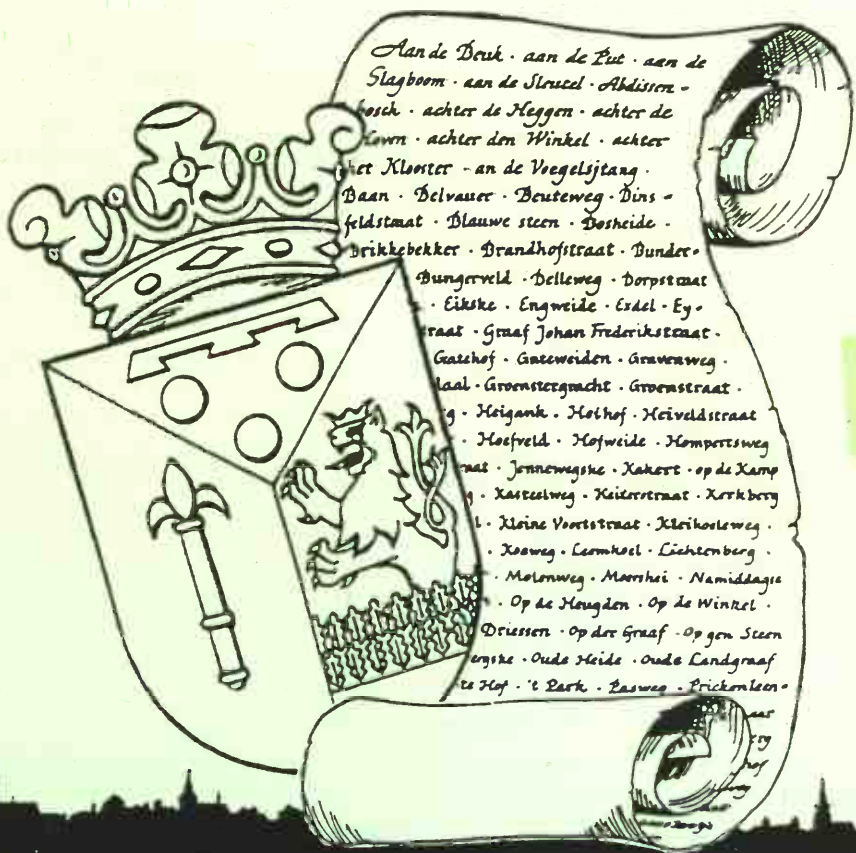 Aan de Beuk · aan de Put · aan de
Slagboom · aan de Sleutel · Abdissen-
bosch · achter de Heggen · achter de
Hovn · achter den Winkel · achter
het Klooster - an de Voegelsjtang ·
Baan · Belvauer · Beuteweg · Bins-
feldstraat · Blauwe steen · Bosheide ·
Brikkebekker · Brandhofstraat · Bunder-
Bungerveld · Delleweg · Dorpstraat
· Eikske · Engweide · Exdel · Ey-
raat · Graaf Johan Frederikstraat ·
Gatehof · Gateweiden · Gravenweg ·
laal · Groenstergracht · Groenstraat ·
g · Heigank · Heihof · Heiveldstraat
· Hoefveld · Hofweide · Hompertsweg
raat · Jennewegske · Kakert · op de Kamp
g · Kasteelweg · Keiterstraat · Kerkberg
l · Kleine Voortstraat · Kleikoeleweg ·
· Koaweg · Leemkoel · Lichtenberg ·
· Molenweg · Moorshei · Namiddagse
· Op de Heugden · Op de Winkel ·
Driessen · Op der Graaf · Op gen Steen
ergske · Oude Heide · Oude Landgraaf
te Hof · 't Park · Pasweg · Prickenleen-
aar
rg
hof
weg